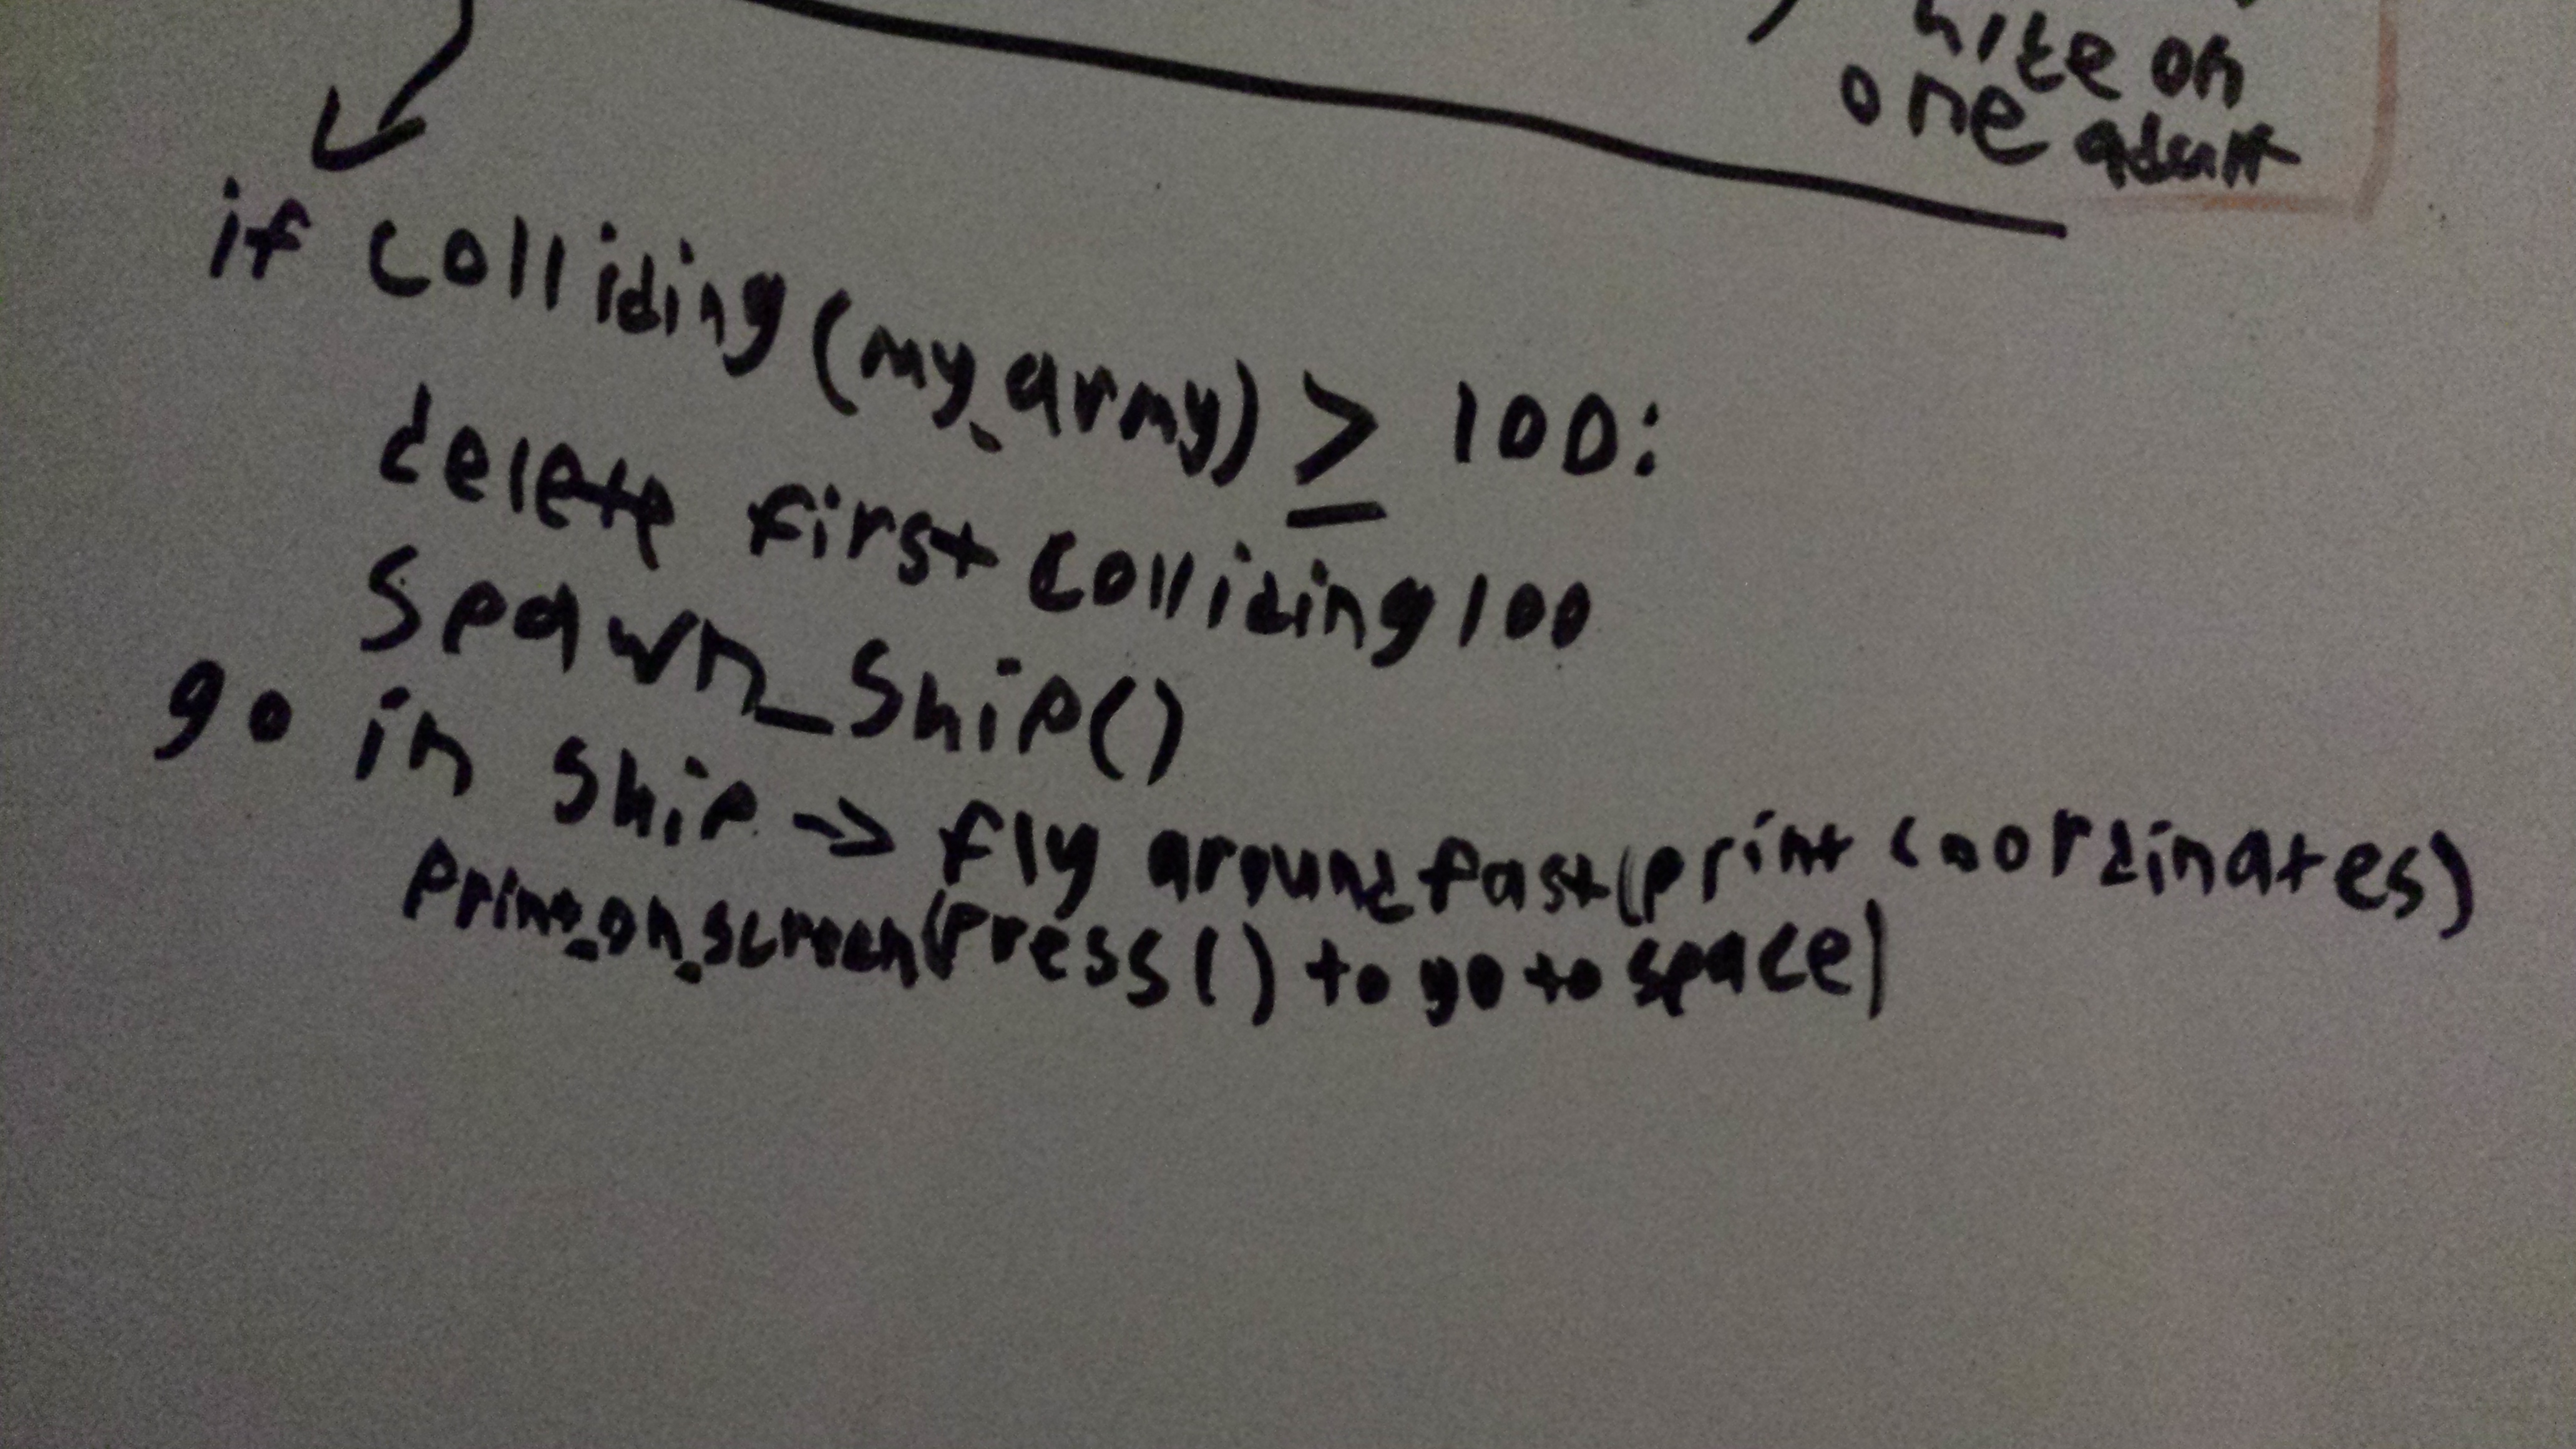 on
one
if colliding(my_army) ≥ 100:
delete first colliding 100
spawn_ship()
go in ship -> fly around fast (print coordinates)
print_on_screen(press () to go to space)